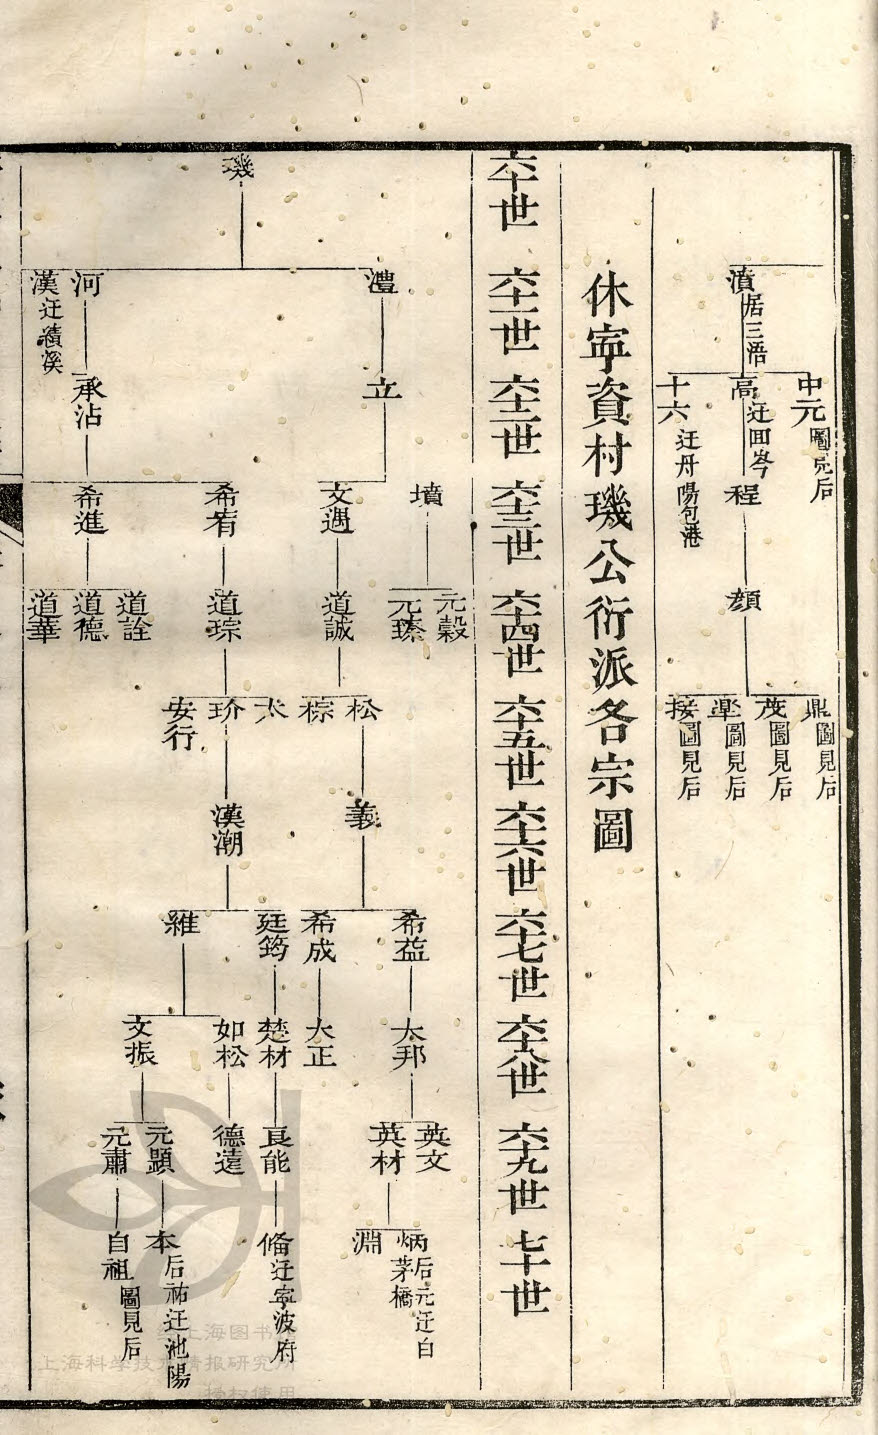 濆居三浯
中元圖見后
高迁田岑
十六迁丹陽包港
程
顔
鼎圖見后
茂圖見后
圖見后
接圖見后
休寧資村璣公衍派各宗圖
六十世
六十一世
六十二世
六十三世
六十四世
六十五世
六十六世
六十七世
六十八世
六十九世
七十世
璣
澧
河
漢迁績溪
立
承沾
墳
文遇
希宥
希進
元穀
元瑧
道誠
道琮
道詮
道德
道華
松
棕
太
玠
安行
義
漢潮
希益
希成
廷筠
維
太邦
大正
楚材
如松
文振
英文
英材
良能
德遠
元顯
元肅
炳后元迁白茅橋
淵
脩迁寧波府
本后祐迁池陽
自祖圖見后
上海图书
上海科学技术情报研究所
授权使用